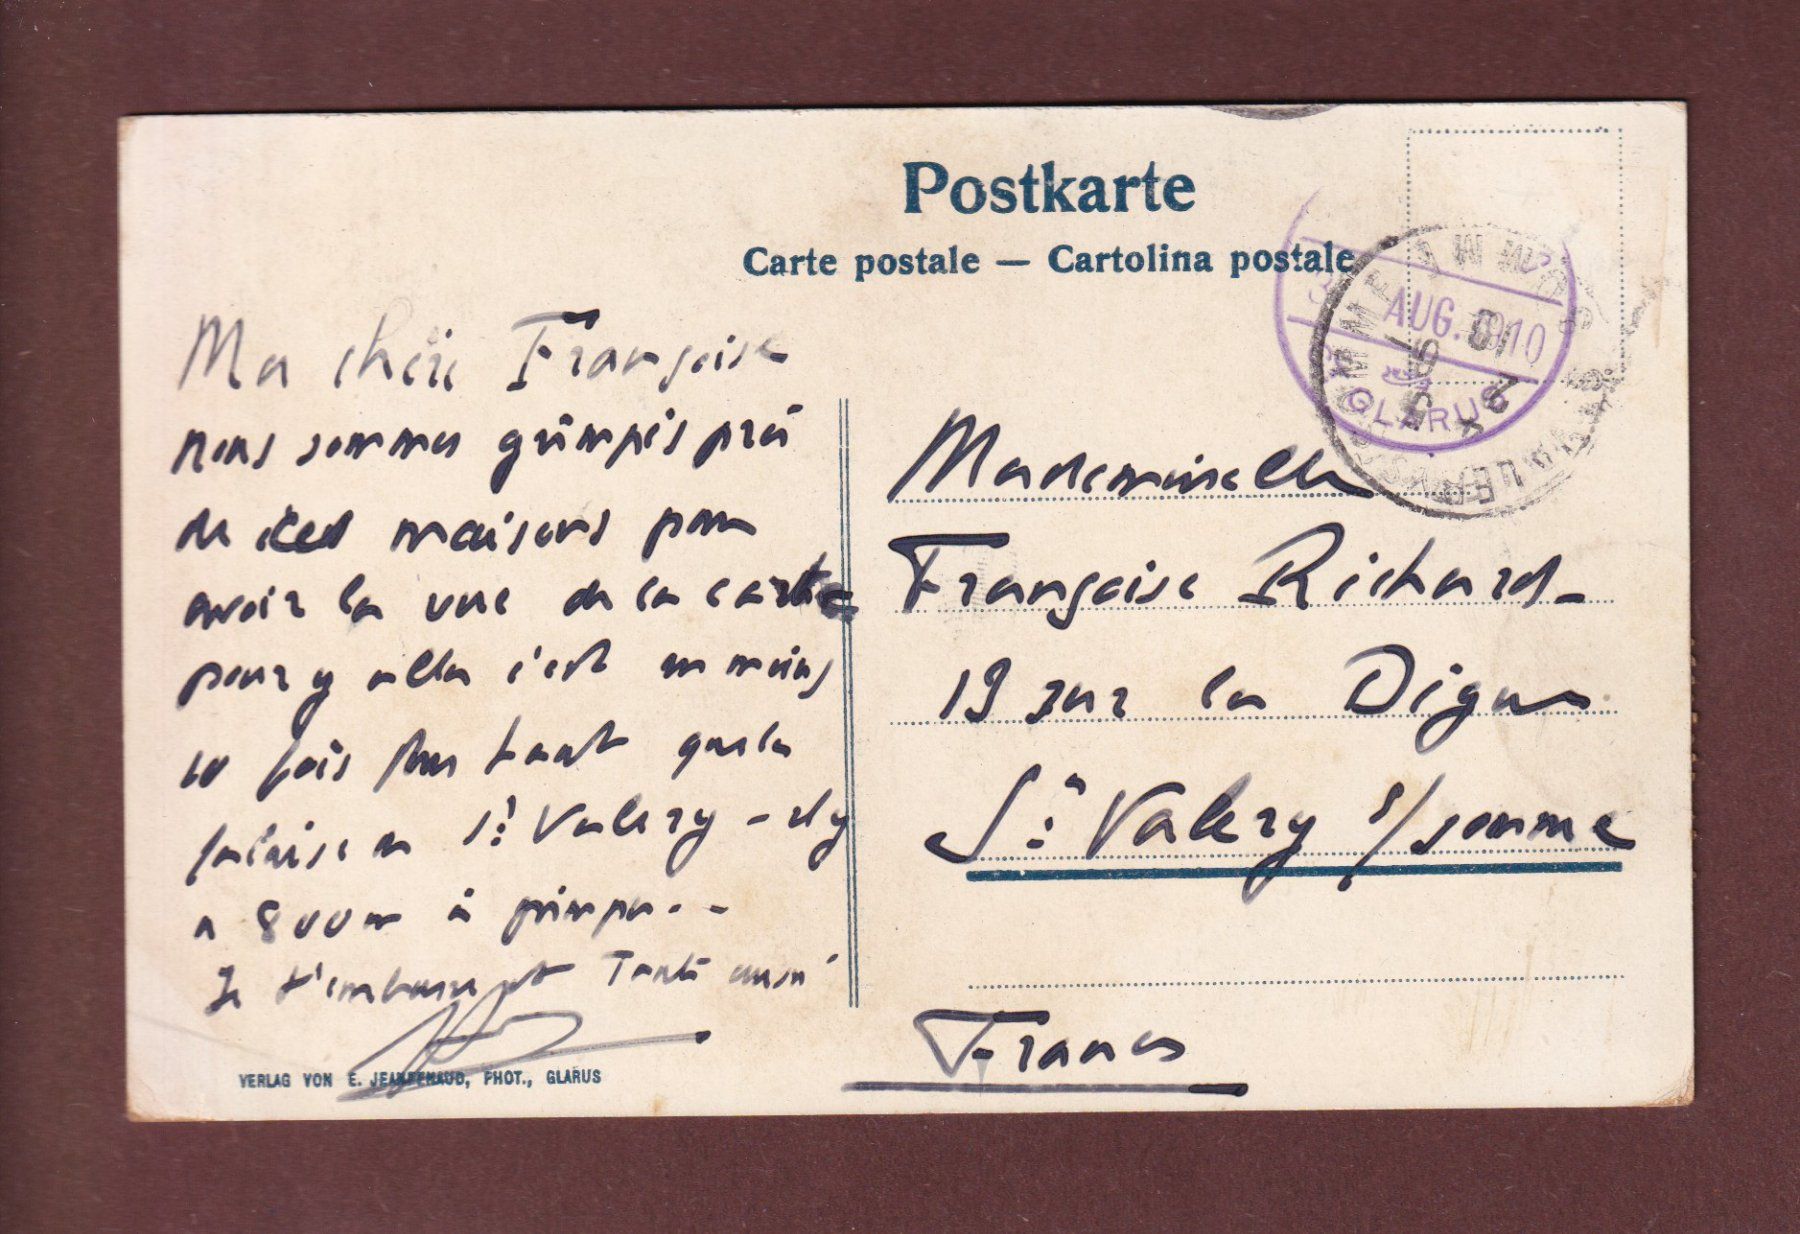 Postkarte
Carte postale — Cartolina postale
AUG. 1910
GLARUS
Ma chère Françoise
nous sommes grimpés près
de ces maisons pour
avoir la vue de la carte
pour y aller c'est au moins
10 fois plus haut que la
falaise à St Valery - il y
a 800m à grimper..
Je t'embrasse et Tante aussi
Mademoiselle
Françoise Richard
19 sur la Digue
St Valery s/somme
France
VERLAG VON E. JEANRENAUD, PHOT., GLARUS